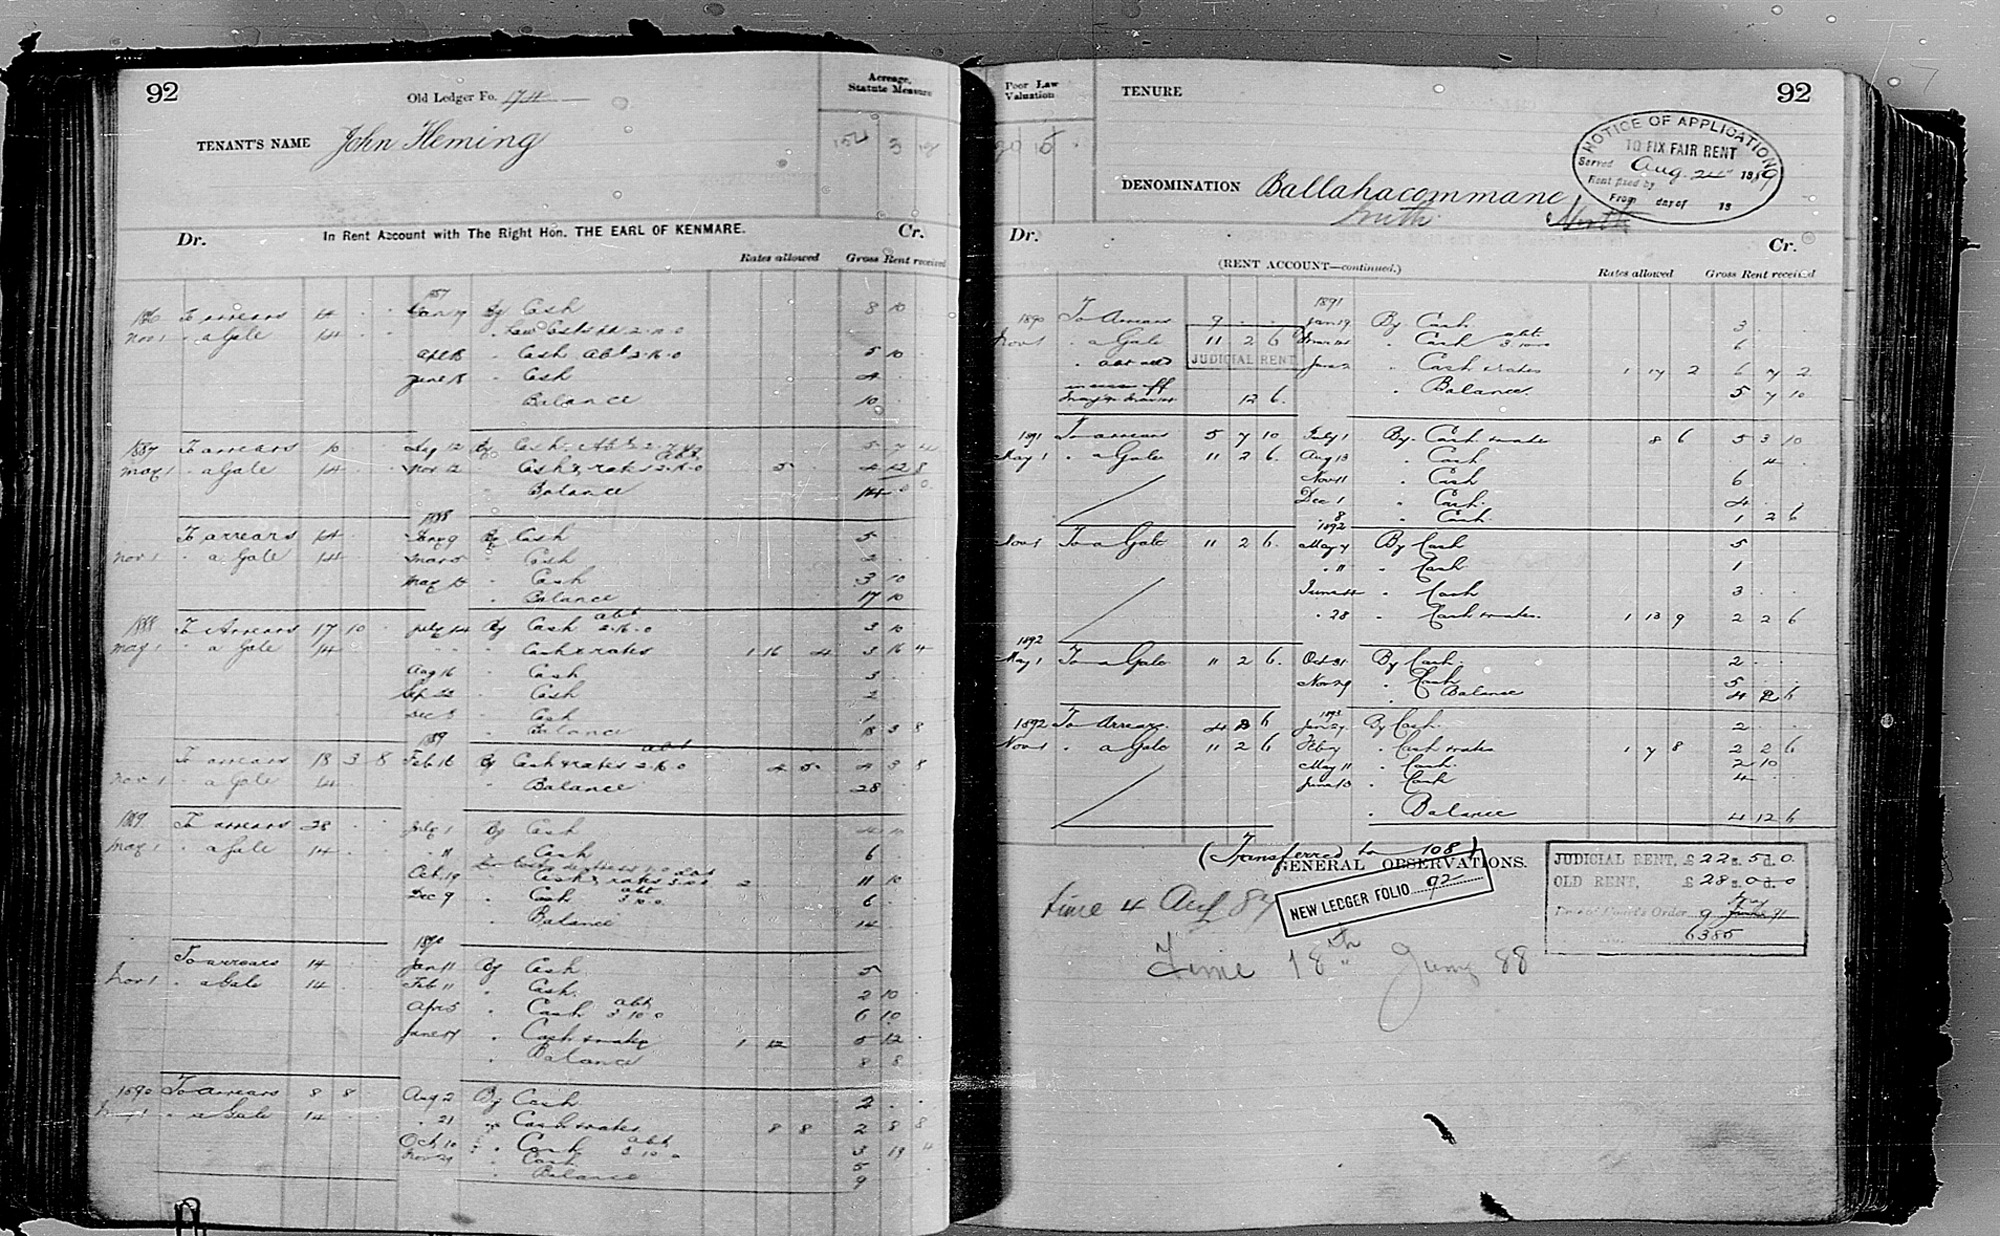 92
Old Ledger Fo. 174
Acreage, Statute Measure
TENANT'S NAME John Fleming
152 3
In Rent Account with The Right Hon. THE EARL OF KENMARE.
Dr. Cr.
Rates allowed Gross Rent received
1887
To arrears 14 Jan 19 By Cash 8 10
Nov 1 " a Gale 14 " Law Costs 2.10.0
" Cash Abt 2.16.0 5 10
June 18 " Cash 4
Balance 10
1887 To arrears 10 By Cash Abt 5 7 4
May 1 " a Gale 14 Nov 12 " Cash & rates 2.16.0 5 4 12 8
" Balance 14 0 0
1888
To arrears 14 Jany 9 By Cash 5
Nov 1 " a Gale 14 Mar 5 " Cash 2
May 15 " Cash 3 10
" Balance 17 10
1888 To Arrears 17 10 July 14 By Cash abt 2.16.0 3 10
May 1 " a Gale 14 " " " Cash & rates 1 16 4 3 16 4
Aug 16 " Cash 3
Sep 22 " Cash 2
Dec 8 " Cash 1
1889 " Balance 18 3 8
To arrears 18 3 8 Feb 16 By Cash & rates abt 2.16.0 4 5 4 3 8
Nov 1 " a Gale 14 " Balance 28
1889 To arrears 28 July 1 By Cash 4
May 1 " a Gale 14 " 11 " Cash 6
Oct 19 " Cash & rates 2 11 10
Dec 9 " Cash abt 3.10.0 6
" Balance 14
1890
To arrears 14 Jan 11 By Cash 5
Nov 1 " a Gale 14 Feb 11 " Cash 2 10
Apr 5 " Cash abt 3 10 0 6 10
June 17 " Cash & rates 1 12 5 12
" Balance 8 8
1890 To arrears 8 8 Aug 2 By Cash 2
May 1 " a Gale 14 " 21 " Cash & rates 8 8 2 8 8
Oct 10 " Cash abt 3 10 0 3 19 4
Nov 21 " Cash 5
" Balance 9
Poor Law Valuation
TENURE
92
NOTICE OF APPLICATION
TO FIX FAIR RENT
Served Aug. 24 1889
Rent fixed by
From day of 18
DENOMINATION Ballahacommane
South North
Dr. Cr.
(RENT ACCOUNT—continued.)
Rates allowed Gross Rent received
1891
1890 To Arrears 9 Jan 19 By Cash 3
Nov 1 " a Gale 11 2 6 " Cash abt 3.10.0 6
JUDICIAL RENT
June 2 " Cash & rates 1 17 2 6 7 2
12 6 " Balance 5 7 10
1891 To arrears 5 7 10 July 1 By Cash & rates 8 6 5 3 10
May 1 " a Gale 11 2 6 Aug 13 " Cash 4
Nov 11 " Cash 6
Dec 1 " Cash 4
" 8 " Cash 1 2 6
1892
Nov 1 To a Gale 11 2 6 May 7 By Cash 5
" 11 " Cash 1
June " Cash 3
" 28 " Cash & rates 1 13 9 2 2 6
1892
May 1 To a Gale 11 2 6 Oct 31 By Cash 2
Nov 29 " Cash 5
" Balance 4 2 6
1893
1892 To Arrears 4 2 6 Jan 27 By Cash 2
Nov 1 " a Gale 11 2 6 Feby " Cash & rates 1 7 8 2 2 6
May 11 " Cash 2 10
June 13 " Cash 4
" Balance 4 12 6
(Transferred to 108)
GENERAL OBSERVATIONS.
NEW LEDGER FOLIO 92
JUDICIAL RENT, £22 s. 5 d. 0
OLD RENT, £28 s. 0 d. 0
Date of Court's Order 9 May 91
6385
time 4 Aug 87
Time 18th June 88